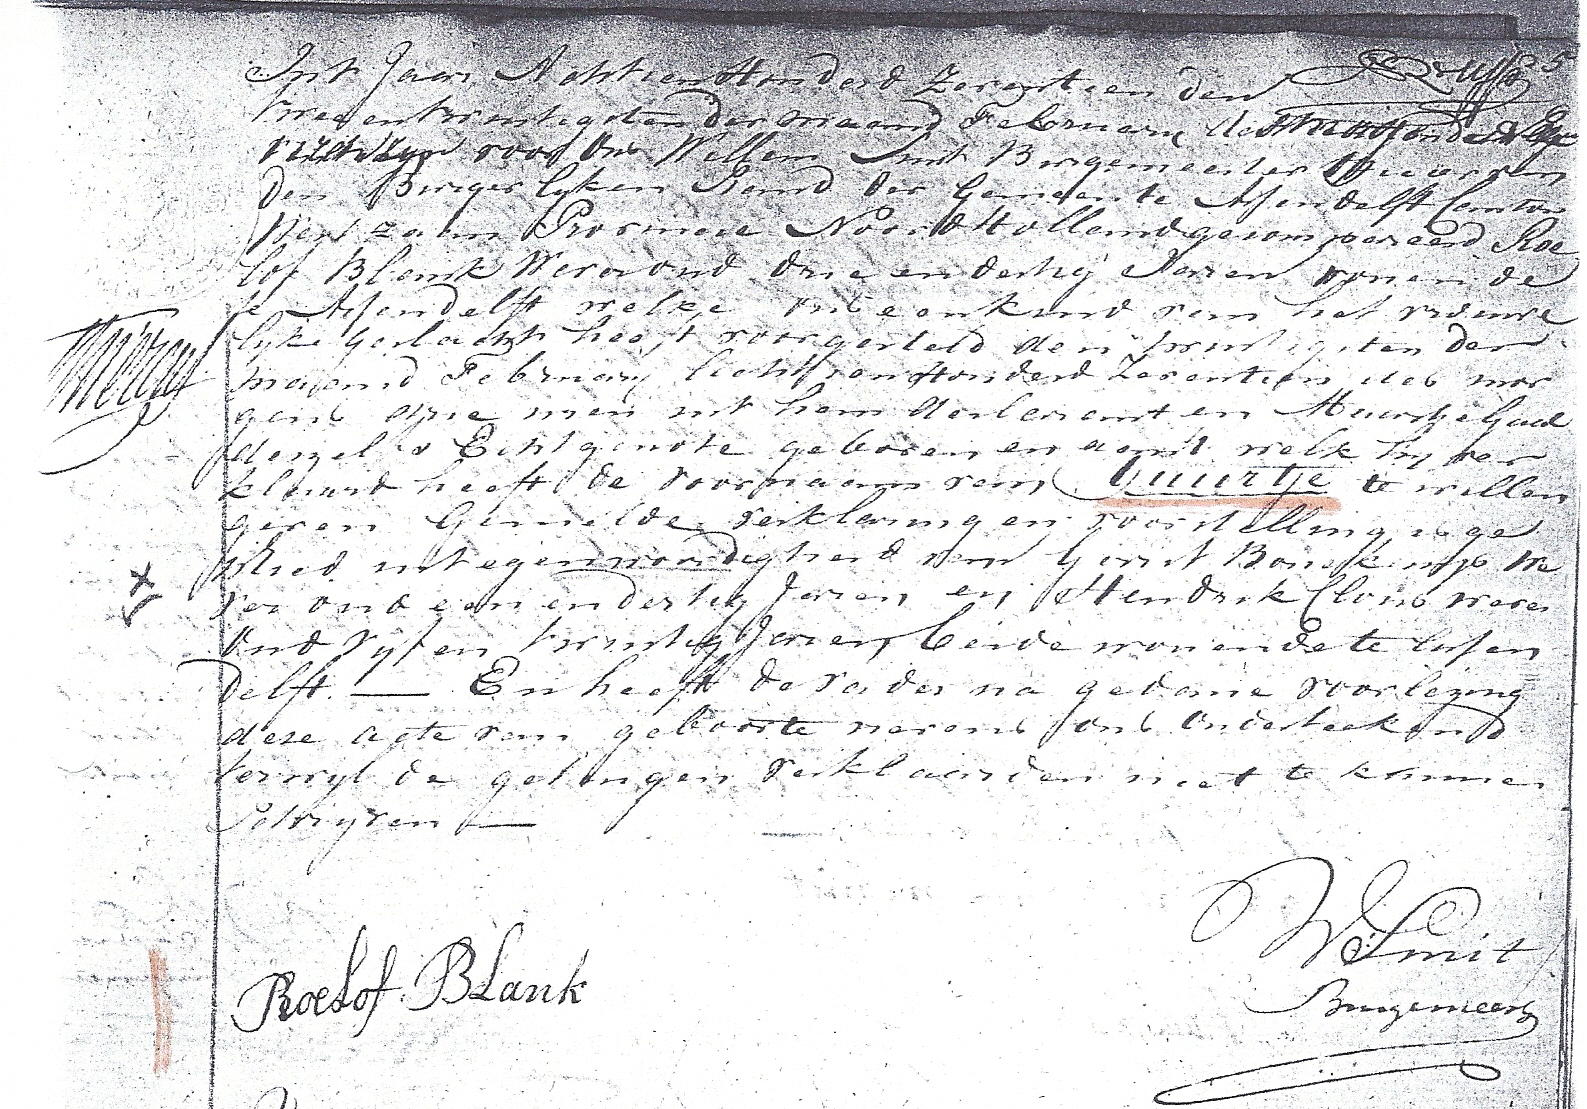 In't Jaar Achttien Honderd Zeventien den
twee en twintigsten der maand February des
voor Ons Willem Smit Burgemeester
den Burgerlyken Stand der Gemeente Assendelft Canton
West zaan Provincie Noord Holland gecompareerd Roe
lof Blank Wever oud drie en dertig Jaren wonende
te Assendelft welke ons een kind van het vrouwe
lyke Geslacht heeft voorgesteld den twintigsten der
maand February Achttien Honderd Zeventien des mor
gens drie uren uit hem declarant en Maartje Gaal
deszelvs Echtgenote geboren en aan't welk hy ver
klaard heeft de voornaam van Guurtje te willen
geven Gemelde verklaring en voorstelling is ge
schied in tegenwoordigheid van Gerrit Bonekamp We
ver oud een en dertig Jaren en Hendrik Clous wever
Oud vyf en twintig Jaren beide wonende te Assen
delft. — En heeft de vader na gedane voorlezing
deze acte van geboorte nevens ons Onderteekend
terwyl de getuigen verklaarden niet te kunnen
Schryven —
Roelof Blank
W Smit
Burgemeester